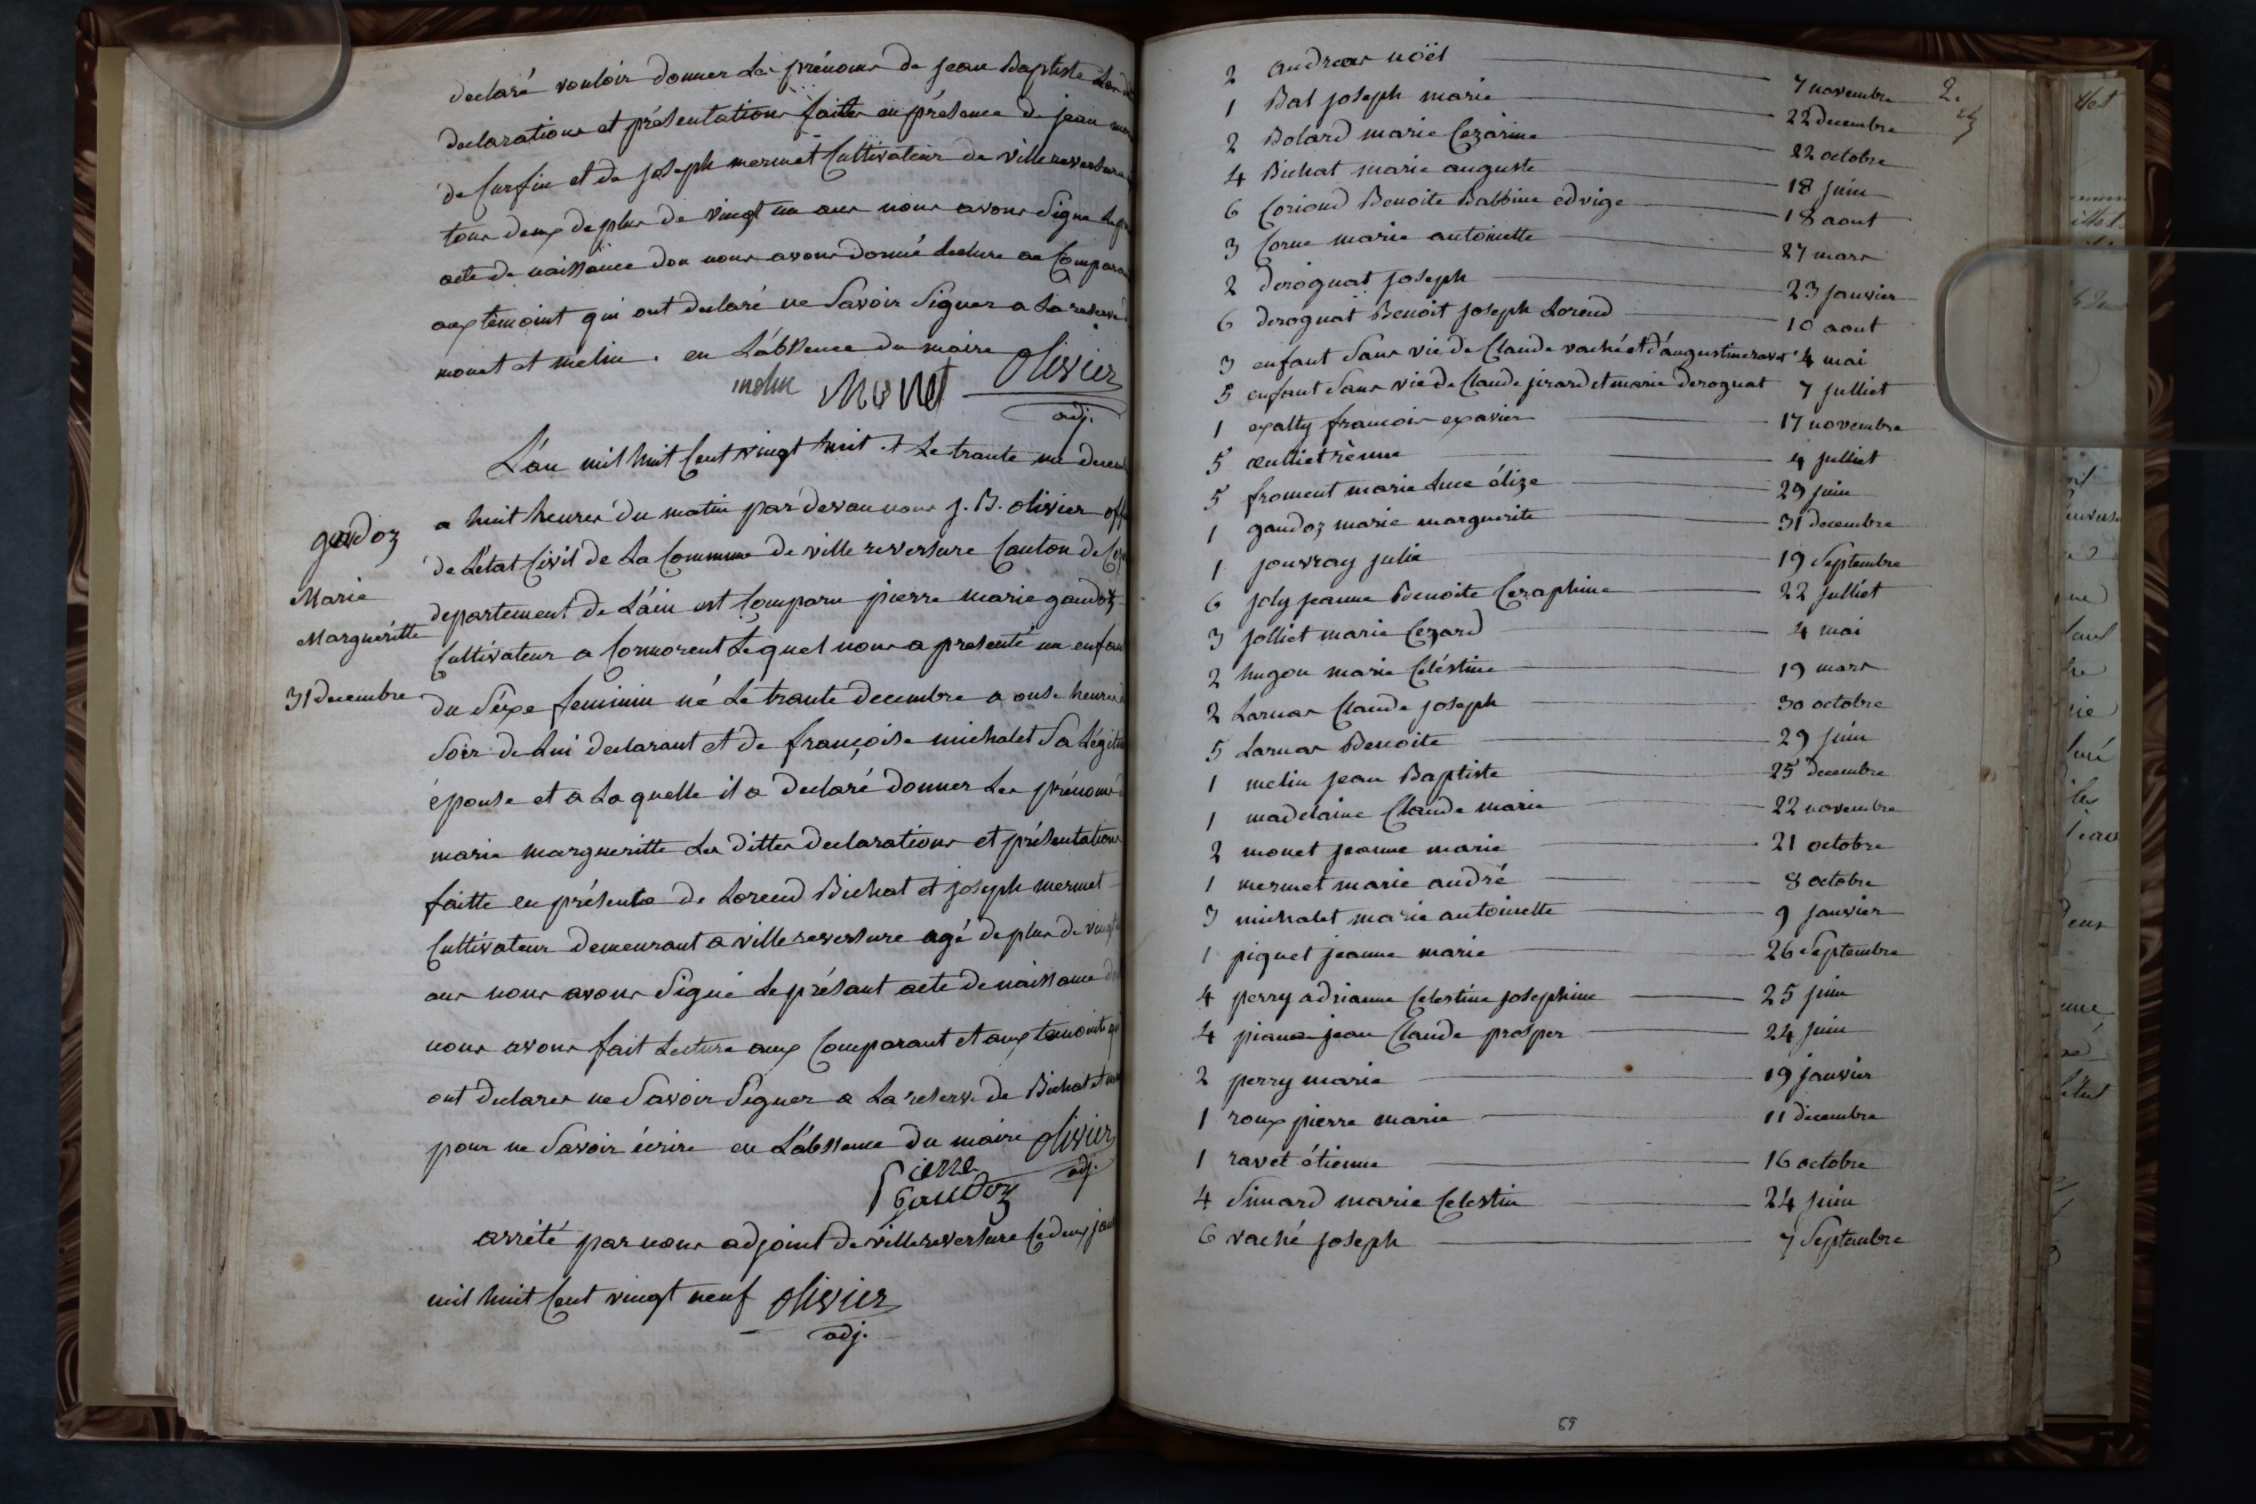 declaré vouloir donner les prénoms de jean Baptiste Les
declarations et présentations faittes en présence de jean
de Curfin et de joseph mermet Cultivateur de villereversure
tous deux de plus de vingt un ans nous avons Signé Le
acte de naissance don nous avons donné lecture au Compara
aux témoint qui ont declaré ne Savoir Signer a La reserve
monet et melin . en L'absence du maire Olivier
melin Monet adj.
L'an mil huit Cent vingt huit et Le trante un decem
a huit heures du matin par devan nous J. B. Olivier off
de L'état Civil de La Commune de ville reversure Canton de
departement de L'ain est Comparu pierre marie gaudoz
Cultivateur a Cormorent Lequel nous a presenté un enfan
du Séxe feminin né Le trante decembre a onse heures
Soir de Lui declarant et de françoise michalet Sa Légit
épouse et a La quelle il a declaré donner Les prénoms
marie margueritte Les dittes declarations et présentations
faitte en présente de Lorend Bichat et joseph mermet
Cultivateur demeurant a ville reversure agé de plus de vingt
ans nous avons Signé Le présant acte de naissance
nous avons fait Lecture aux Comparant et aux temoints qui
ont declarer ne Savoir Signer a La reserve de Bichat et
pour ne Savoir écrire en L'absence du maire Olivier
pierre Gaudoz adj.
arrété par nous adjoint de villereversure Le deux jan
mil huit Cent vingt neuf Olivier
adj.
gaudoz
Marie
Marguéritte
31 decembre
2 andreas noël 7 novembre
1 Bal joseph marie 22 decembre
2 Bolard marie Cezarine 22 octobre
4 Bichat marie auguste 18 juin
6 Coriond Benoite Balbine edvige 18 aout
3 Corne marie antoinette 27 mars
2 deroguat joseph 23 janvier
6 deroguat Benoit joseph Lorend 10 aout
3 enfant Sans vie de Claude vaché et d'augustine ravet 4 mai
5 enfant Sans vie de Claude jirard et marie deroguat 7 julliet
1 exalty francois exavier 17 novembre
5 œulliet rènne 4 julliet
5 froment marie Luce élize 29 juin
1 gaudoz marie marguerite 31 decembre
1 jouvray julie 19 Septembre
6 joly jeanne Benoite Cezaphine 22 julliet
3 jolliet marie Cezard 4 mai
2 hugon marie Celéstine 19 mars
2 Larnas Claude joseph 30 octobre
5 Larnas Benoite 29 juin
1 melin jean Baptiste 25 decembre
1 madelaine Claude marie 22 novembre
2 monet jeanne marie 21 octobre
1 mermet marie andré 8 octobre
3 michalet marie antoinette 9 janvier
1 piquet jeanne marie 26 Septembre
4 perry adrianne Celestine josephine 25 juin
4 piane jean Claude prosper 24 juin
2 perry marie 19 janvier
1 roux pierre marie 11 decembre
1 ravet étienne 16 octobre
4 Simard marie Celestin 24 juin
6 vaché joseph 7 Septembre
69